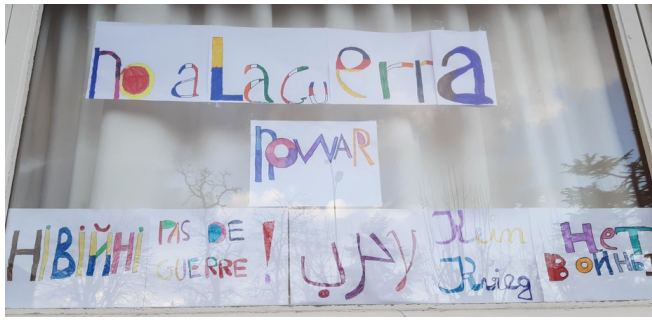 no a La guerra
NO WAR
НІ ВІЙНІ
PAS DE
GUERRE !
لا حرب
Kein
Krieg
НеТ